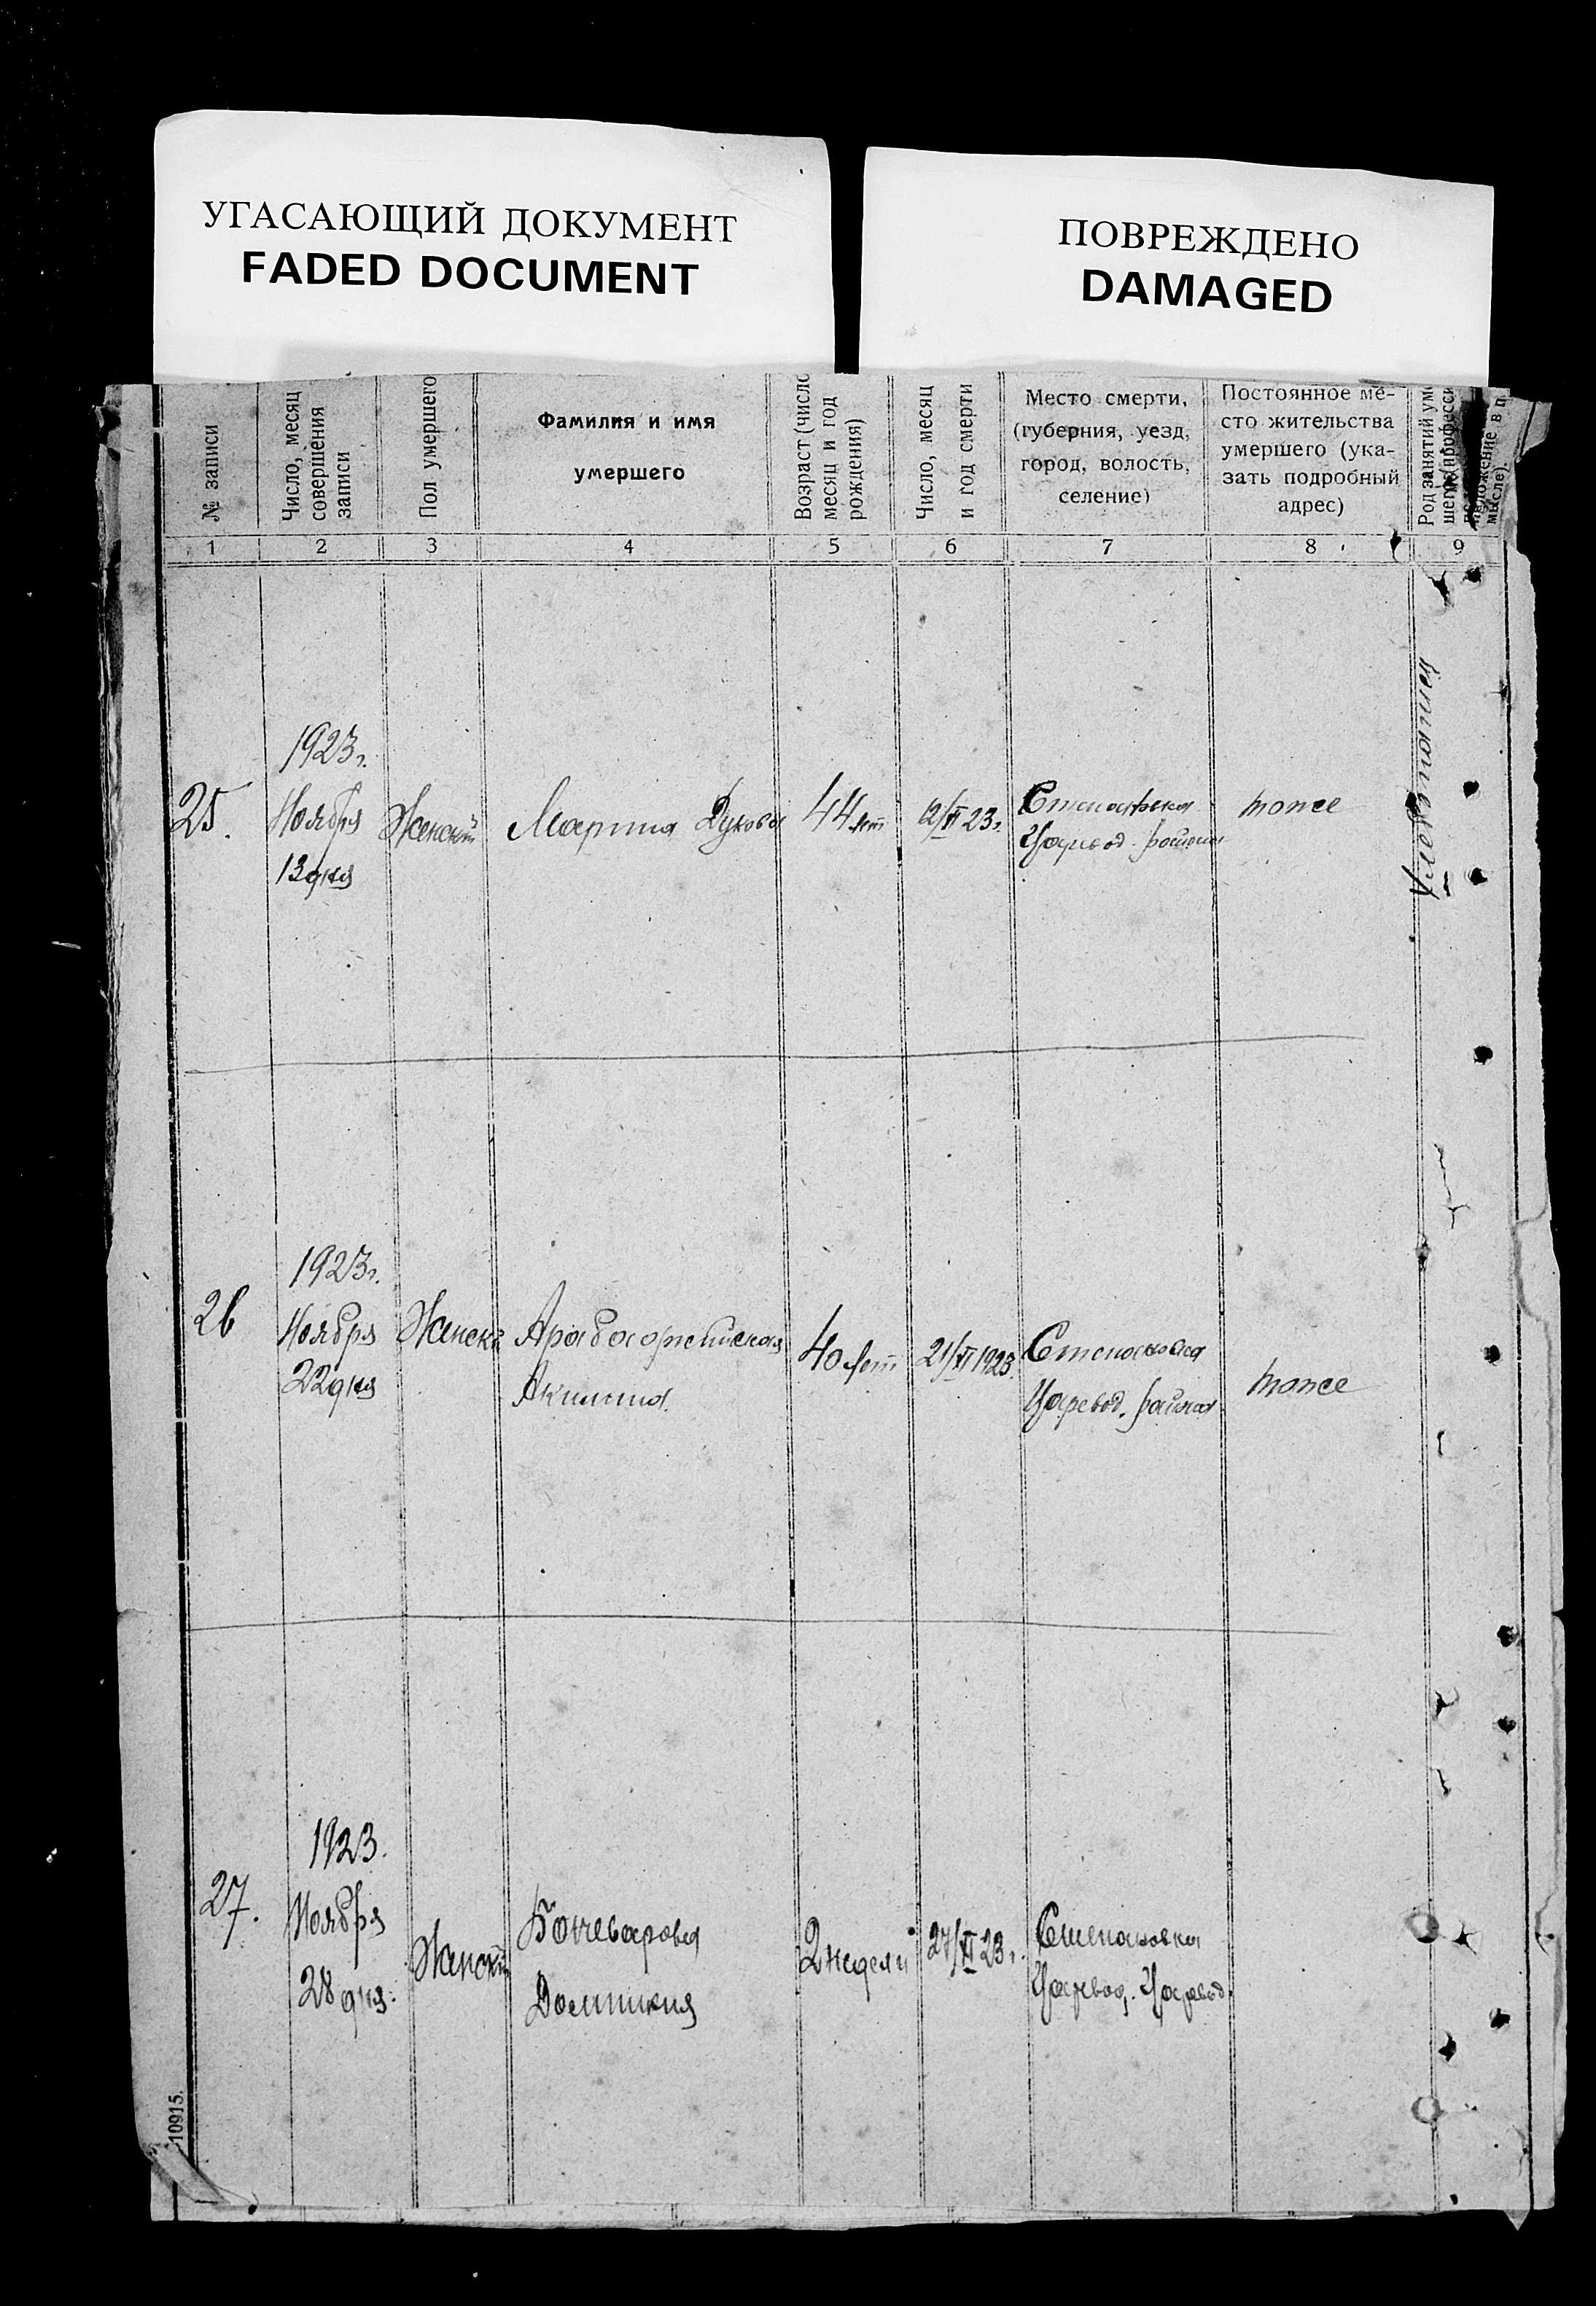 УГАСАЮЩИЙ ДОКУМЕНТ
FADED DOCUMENT
ПОВРЕЖДЕНО
DAMAGED
№ записи
Число, месяц
совершения
записи
Пол умершего
Фамилия и имя
умершего
Возраст (число
месяц и год
рождения)
Число, месяц
и год смерти
Место смерти,
(губерния, уезд,
город, волость,
селение)
Постоянное ме-
сто жительства
умершего (ука-
зать подробный
адрес)
Род занятий
мысле)
1 2 3 4 5 6 7 8 9
25.
1923г.
Ноября
13 дня
Женский
Марина Дукова
44 лет
12/XI 23г.
Степановка
Царевод. района
тоже
26
1923г.
Ноября
22 дня
Женски
Акилина
40 лет
21/XI 1923.
Степановка
Царевод. района
тоже
27.
1923.
Ноября
28 дня.
Женский
Бончеварова
Домникия
2 недели
27/XI 23г.
Степановка
Царевод. Царевод.
10915.